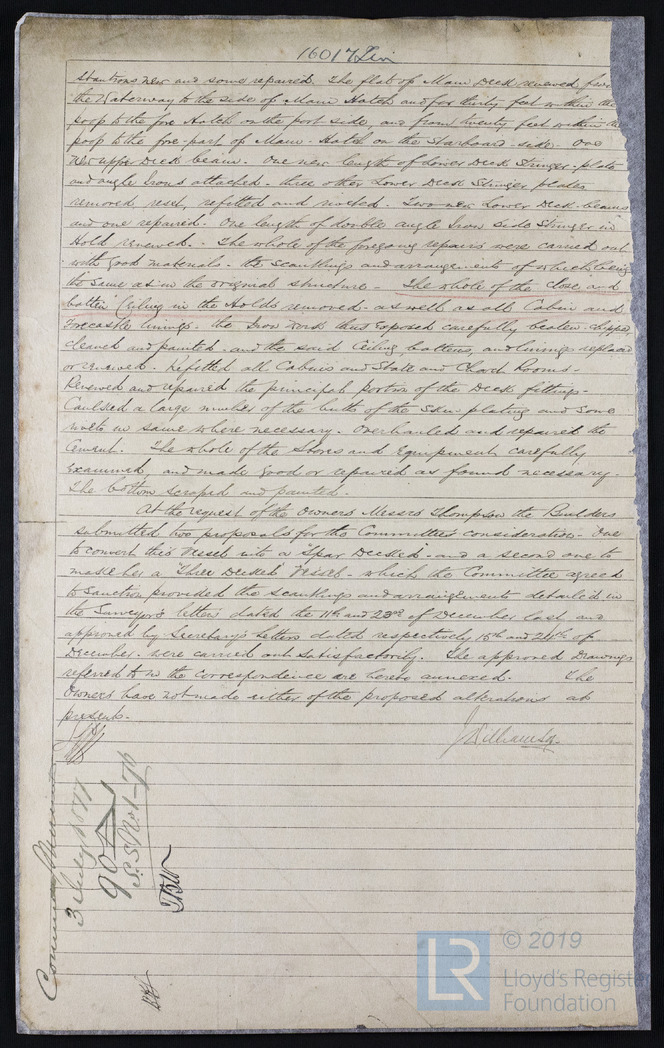 16017 Liv
Stantions new and some repaired. The flat of Main Deck renewed from
the Waterway to the side of Main Hatch and for thirty feet within the
poop to the fore Hatch on the port side, and from twenty feet within the
poop to the fore part of Main Hatch on the Starboard side. One
new upper Deck beam. One new length of Lower Deck Stringer plate
and angle Irons attached. three other Lower Deck Stringer plates
removed reset, refitted and riveted. Two new Lower Deck beams
and one repaired. One length of double angle Iron Side Stringer in
Hold renewed. The whole of the foregoing repairs were carried out
with good materials. the scantlings and arrangements of which being
the same as in the original structure - The whole of the close and
batten Ceiling in the Holds removed as well as all Cabin and
Forecastle linings. the Iron work thus exposed carefully beaten chipped
cleaned and painted and the said Ceiling, battens, and linings replaced
or renewed. Refitted all Cabins and State and Chart Rooms.
Renewed and repaired the principal portion of the Deck fittings.
Caulked a large number of the butts of the Skin plating and some
rivets in same where necessary. Overhauled and repaired the
Cement. The whole of the Stores and Equipment carefully
examined and made good or repaired as found necessary.
The bottom scraped and painted.
At the request of the Owners Messrs Thompson the Builders
submitted two proposals for the Committee's consideration - One
to convert this Vessel into a "Spar Decked" - and a second one to
make her a "Three Decked" Vessel - which the Committee agreed
to sanction provided the scantlings and arrangements detailed in
the Surveyor's letters dated the 11th and 23rd of December last and
approved by Secretary's letters dated respectively 15th and 24th of
December. were carried out satisfactorily. The approved Drawings
referred to in the correspondence are hereto annexed. The
Owners have not made either of the proposed alterations at
present.
J Williamson
3 July 1877
90A
S.S. No 1-76